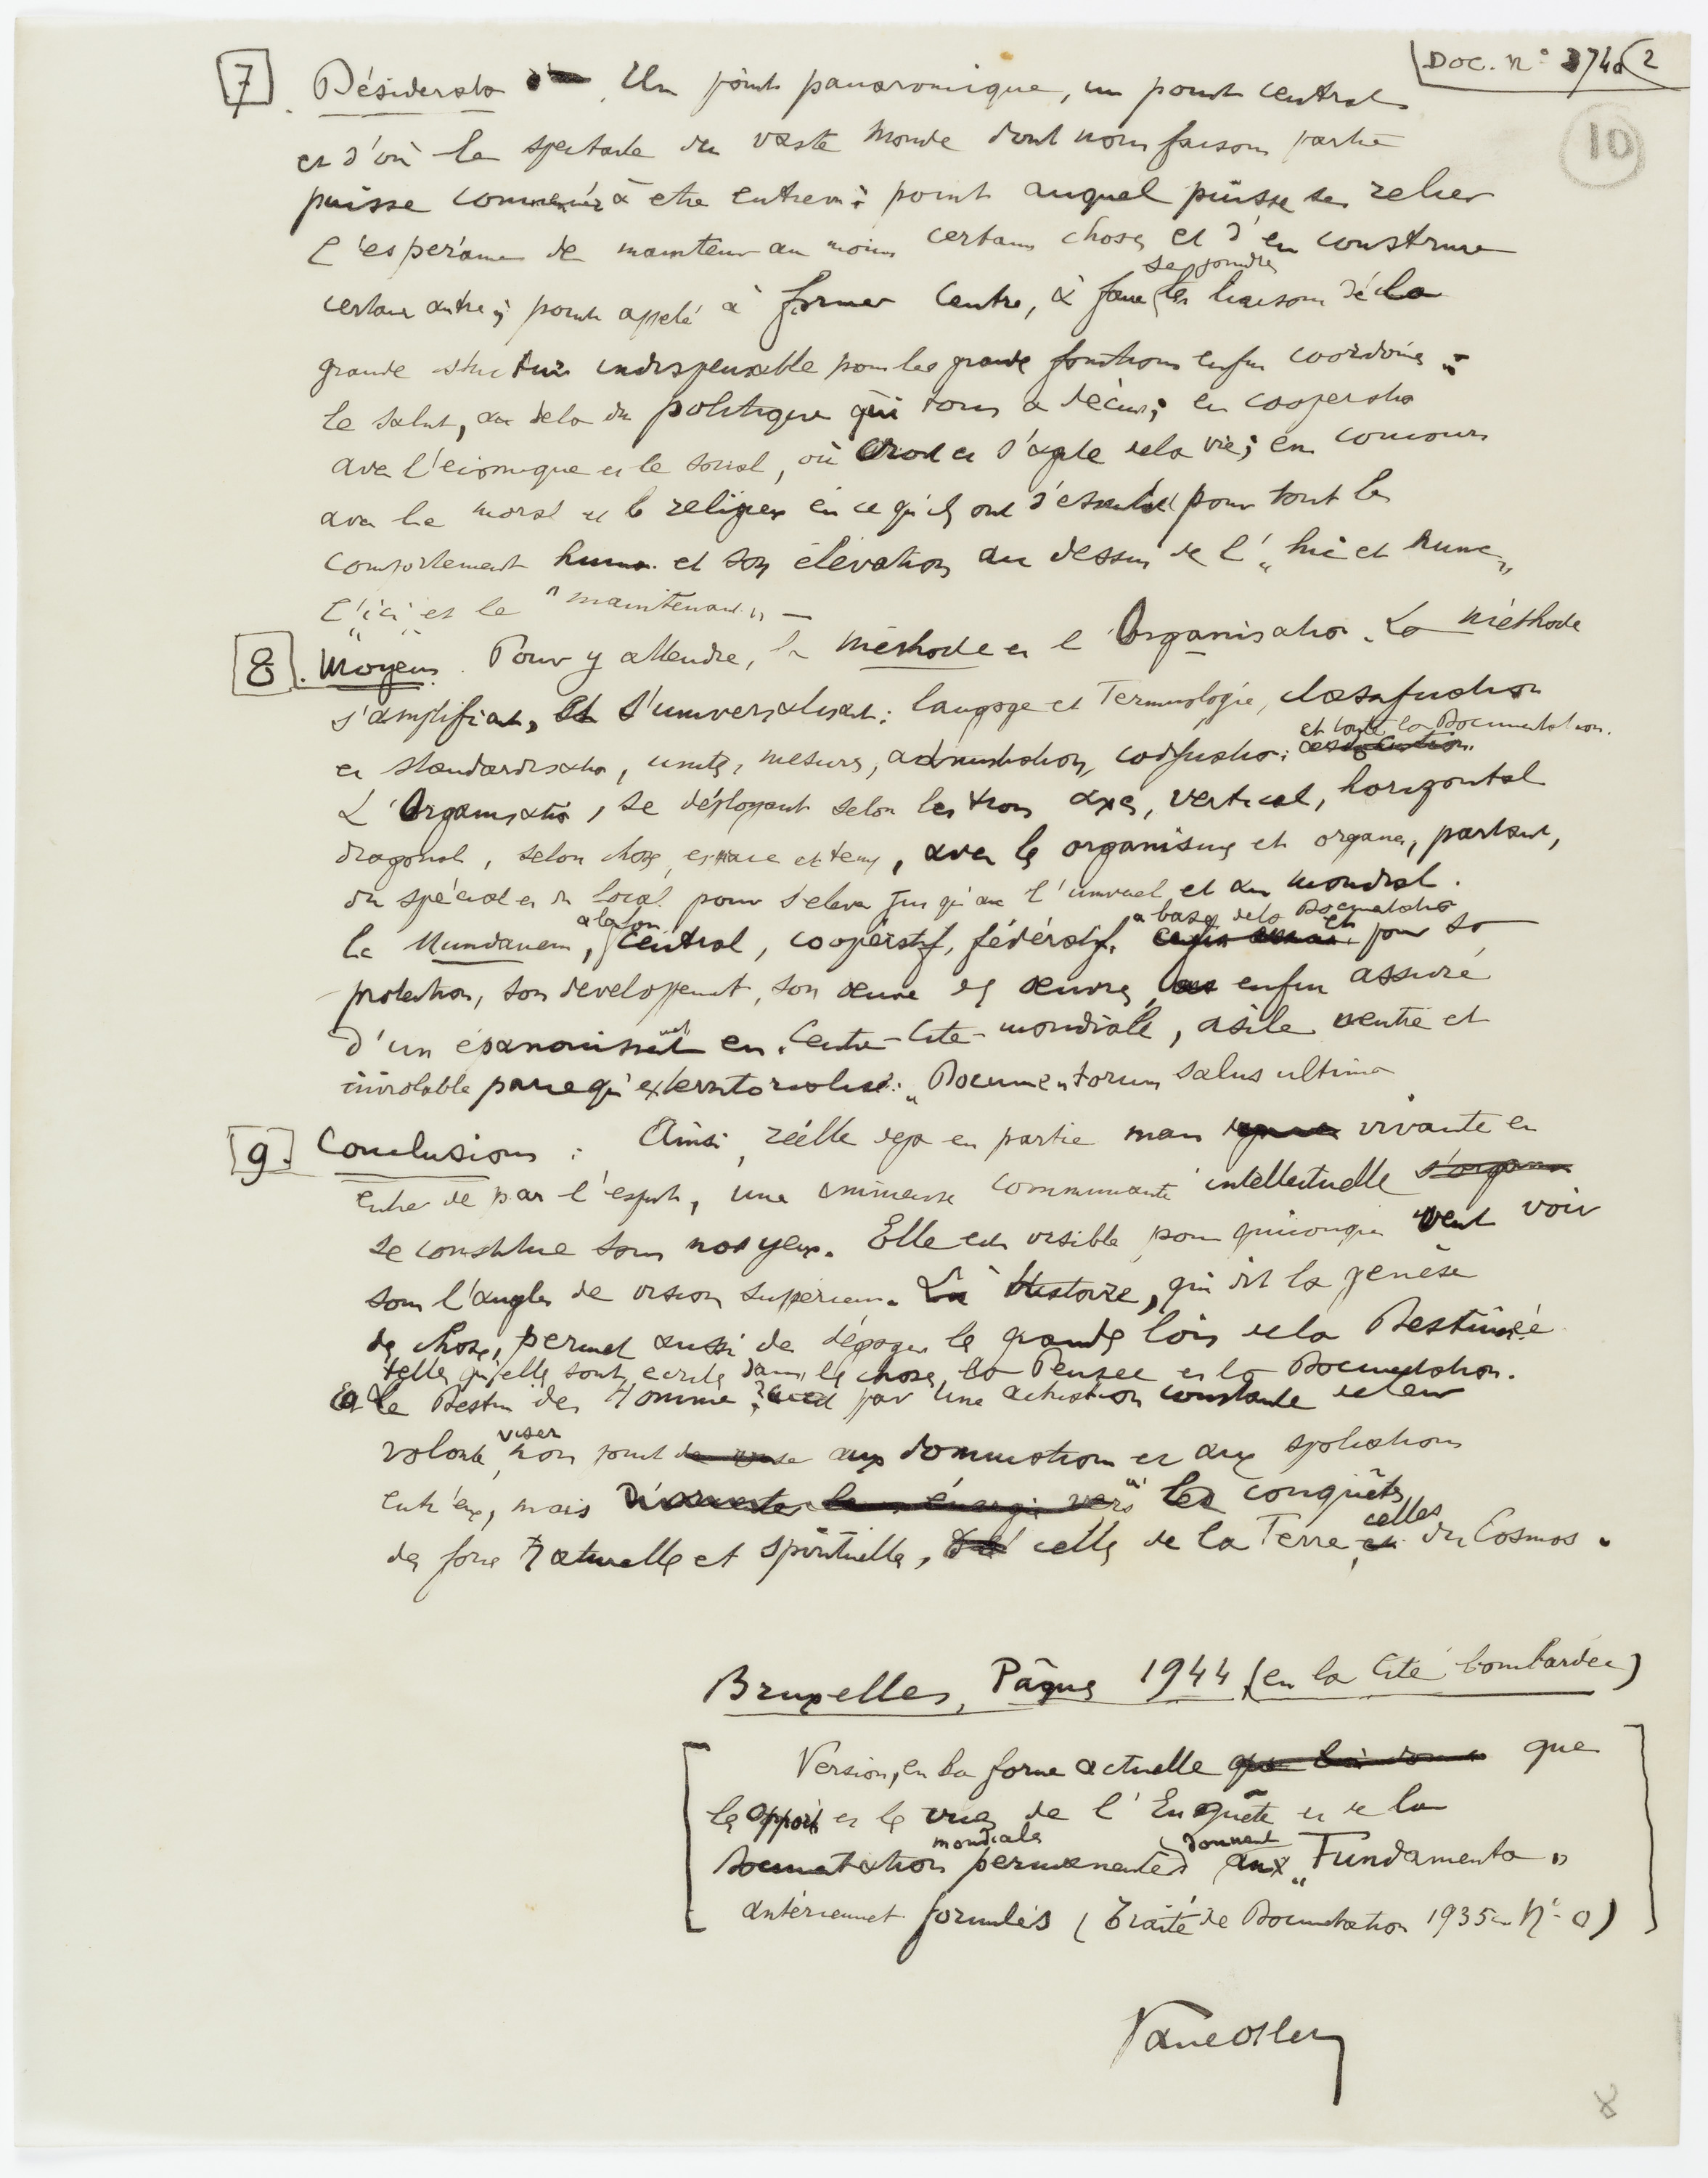 Doc. n° 3740 2
10
7. Désiderata. Un point panaromique, un point central
et d'où le spectacle du vaste monde dont nous faisons partie
puisse commencer à etre entrevu; point auquel puisse se relier
l'espérance de maintenir au moins certaines choses et d'en construire
se joindre
certaines autres; point appelé à former Centre, à faire les liaisons de la
grande structure indispensable pour les grandes fonctions enfin coordonnées:
le salut, au dela du politique qui nous a déçus; en cooperation
avec l'économique et le social, où croit et s'agite la vie; en concours
avec le moral et le religieux en ce qu'ils ont d'essentiel pour tout le
comportement humain et son élévation au dessus de l'„hic et nunc„
l'"ici" et le "maintenant". —
8. Moyens. Pour y attendre, la méthode et l'Organisation. La méthode
s'amplifiant, s'universalisant: langage et Terminologie, classification
et toute la Documentation.
et standardisation, unités, mesures, administration, codification;
L'Organisation, se déployant selon les trois axes, vertical, horizontal
diagonal, selon choses, espace et temps, avec les organismes et organes, partant,
du spécial et du local pour s'elever jusqu'au l'universel et au mondial.
à la fois à base de la Documentation et
Le Mundaneum, central, coopératif, fédératif, pour sa
protection, son developpement, son œuvre et œuvres, enfin assuré
d'un épanouissement en Centre-Cité-mondiale, asile neutre et
inviolable parce qu'exterritorialisé: „Documentorum salus ultima
9. Conclusions: Ainsi, réelle deja en partie mais vivante en
entier de par l'esprit, une immense communauté intellectuelle
se constitue sous nos yeux. Elle est visible pour quiconque veut voir
sous l'angle de vision superieur. L'Histoire, qui dit la genèse
des choses, permet aussi de dégager les grandes lois de la Destinée
telles qu'elles sont ecrites dans les choses, la Pensée et la Documentation.
Et le Destin des Hommes par une activation constante de leur
viser
volonté, non point aux dominations et aux spoliations
entr'eux, mais les conquêtes
celles
des forces naturelles et spirituelles, celles de la Terre, du Cosmos.
Bruxelles, Pâques 1944 (en la Cité bombardée)
Version, en la forme actuelle que
les apports et les vues de l'Enquête et de la
mondiale donnent
documentation permanentes aux „Fundamenta„
antérieurement formulés (Traité de Documentation 1935 n° 0)
8